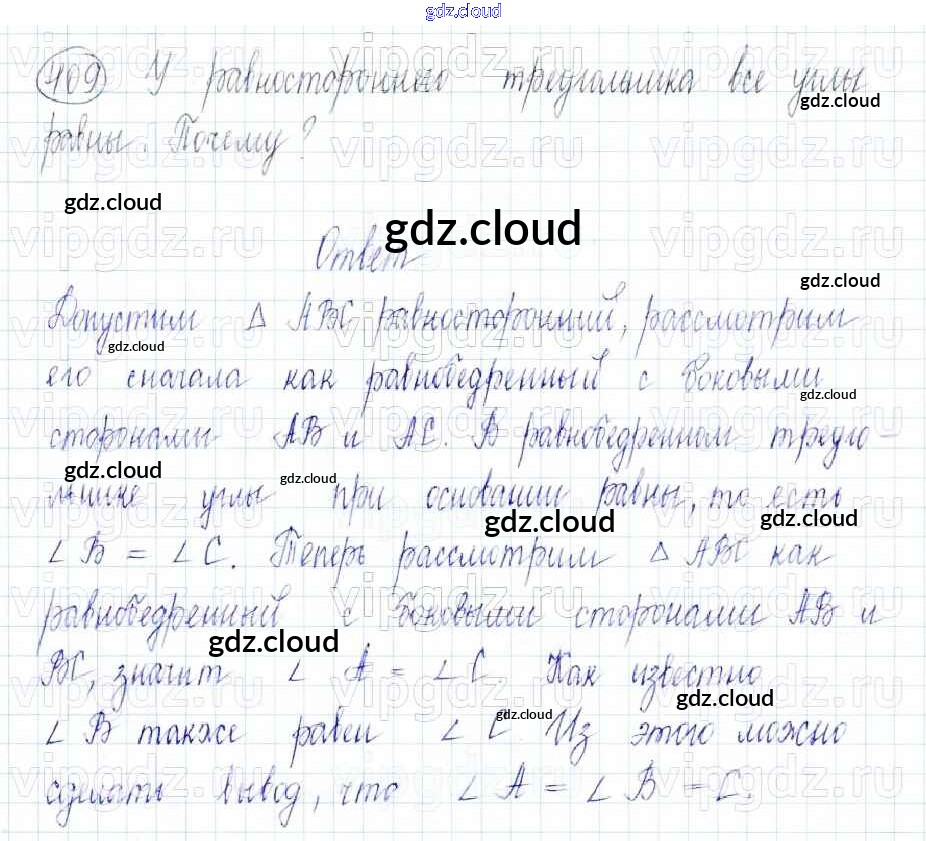 gdz.cloud
409 У равностороннего треугольника все углы
gdz.cloud
равны. Почему?
vipgdz.ru vipgdz.ru vipgdz.ru
gdz.cloud
gdz.cloud
Ответ
gdz.cloud
Допустим Δ ABC равносторонний, рассмотрим
gdz.cloud
его сначала как равнобедренный с боковыми
gdz.cloud
сторонами AB и AC. В равнобедренном треуго-
gdz.cloud gdz.cloud
льнике углы при основании равны, то есть
gdz.cloud gdz.cloud
∠ B = ∠ C. Теперь рассмотрим Δ ABC как
равнобедренный с боковыми сторонами AB и
gdz.cloud
BC, значит ∠ A = ∠ C. Как известно
gdz.cloud
gdz.cloud
∠ B также равен ∠ C. Из этого можно
сделать вывод, что ∠ A = ∠ B = C.